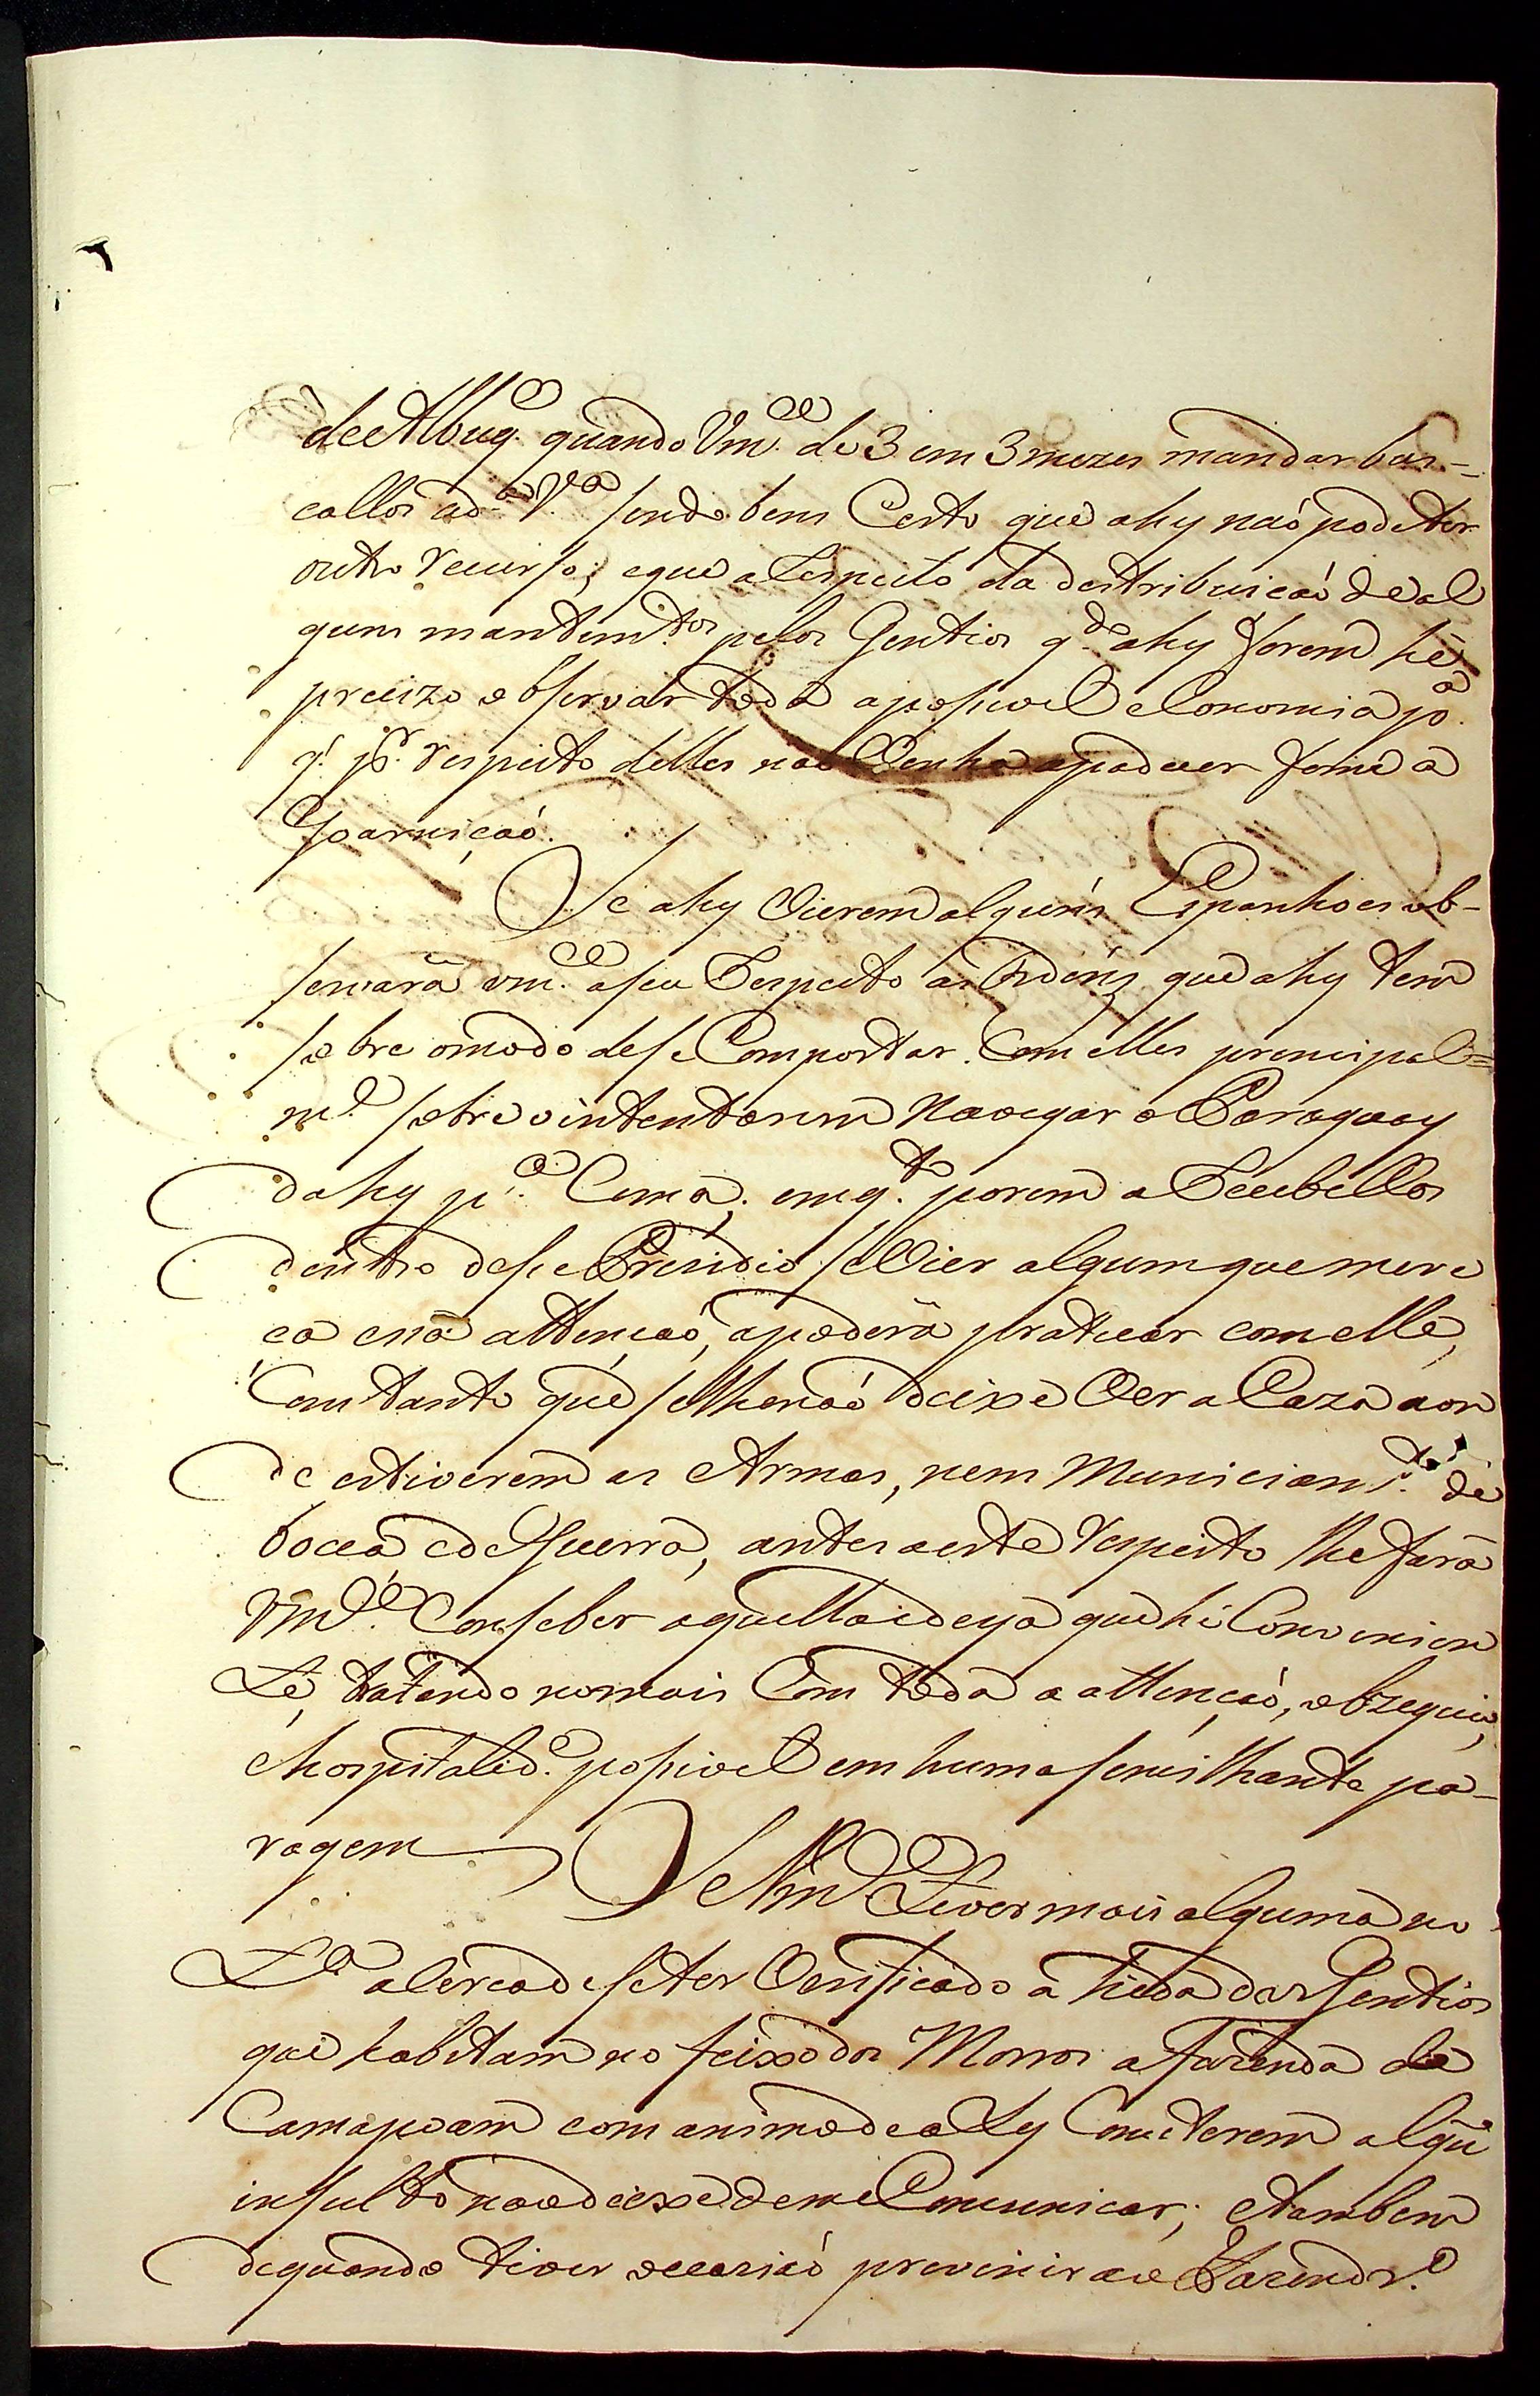 de Albuq.e quando Vm.ce de 3 em 3 mezes mandar bus-
callos ad.a V.a sendo bem Certo que ahy naó pode ter
outro recurso; eque aRespeito da destribuicaó de al
guns mantim.tos pelos Gentios q.do ahy forem hé
precizo observar toda aposivel eConomia p.a
q.' p.r respeito delles naó Venha apadecer fome a
Goarniçaó.
Se ahy Vierem alguns Espanhoes ob-
servará vm.ce aseu Respeito as Ordens que ahy tem
sobre omodo dese Comportar Com elles principal=
m.e sobre o intentarem Navegar o Paraguay
dahy p.a Cima; emq.to porem a Recebellos
dentro dese Prezidio se Vier algum que mere
ça esa attençaó, apoderá praticar com elle,
Com tanto que selhe naó deixe Ver a Caza aon
de estiverem as Armas, nem Municiam.tos de
boca e de Guerra, antes aeste respeito lhe fará
Vm.ce Conseber aquella ideya que hé Convenien
te, tratando nomais Com toda a attençaó, obzequio,
ehospitalid.e posivel em huma semilhante pa-
ragem Se Vm.ce tiver mais alguma no
t.a aCerca de se ter Verificado a hida dos Gentios
que habitam no feixo dos Morros a Fazenda de
Camapoam com animo de aly Cometerem algũ
insulto naó deixe de me Comunicar; etambem
de quando tiver occasiaó prevenir ao Fazendr.o